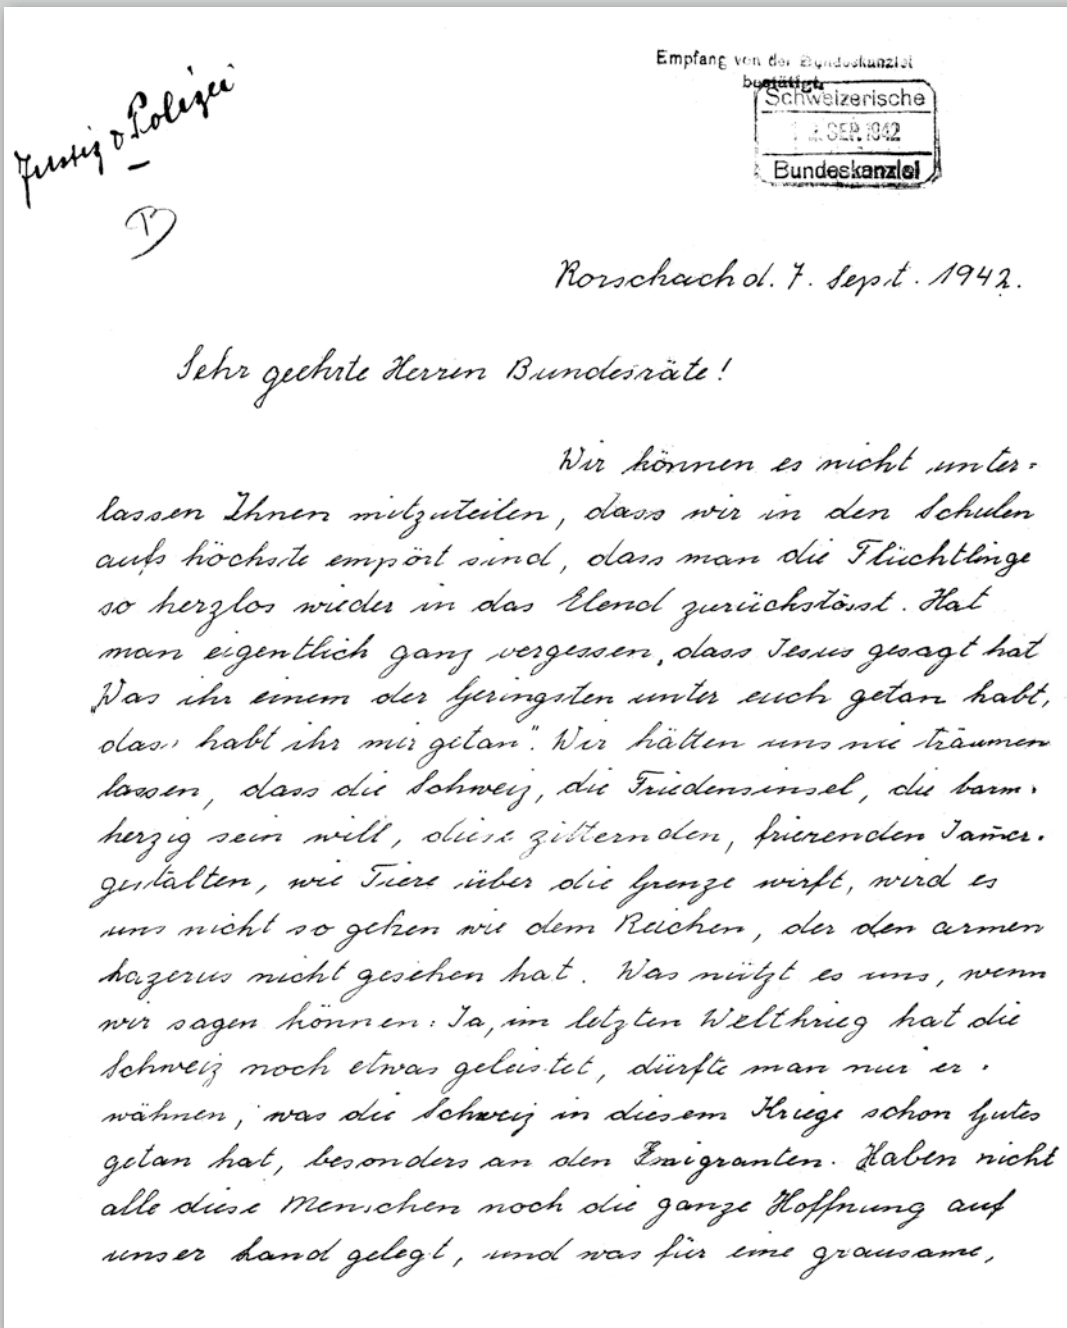 Empfang von der Bundeskanzlei
bestätigt.
Schweizerische
SEP. 1942
Bundeskanzlei
Justiz & Polizei
Rorschach d. 7. Sept. 1942.
Sehr geehrte Herren Bundesräte!
Wir können es nicht unter-
lassen Ihnen mitzuteilen, dass wir in den Schulen
aufs höchste empört sind, dass man die Flüchtlinge
so herzlos wieder in das Elend zurückstösst. Hat
man eigentlich ganz vergessen, dass Jesus gesagt hat
„Was ihr einem der Geringsten unter euch getan habt,
das habt ihr mir getan". Wir hätten uns nie träumen
lassen, dass die Schweiz, die Friedensinsel, die barm-
herzig sein will, diese zitternden, frierenden Jam̄er-
gestalten, wie Tiere über die Grenze wirft, wird es
uns nicht so gehen wie dem Reichen, der den armen
Lazerus nicht gesehen hat. Was nützt es uns, wenn
wir sagen können: Ja, im letzten Weltkrieg hat die
Schweiz noch etwas geleistet, dürfte man nur er-
wähnen, was die Schweiz in diesem Kriege schon Gutes
getan hat, besonders an den Emigranten. Haben nicht
alle diese Menschen noch die ganze Hoffnung auf
unser Land gelegt, und was für eine grausame,